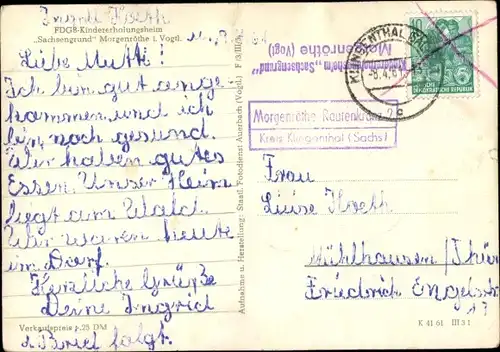 Ingrid
FDGB-Kindererholungsheim
„Sachsengrund" Morgenröthe i. Vogtl.
Liebe Mutti!
Ich bin gut ange-
kommen und ich
bin noch gesund.
Wir haben gutes
Essen. Unser Heim
liegt am Wald.
Wir waren heute
im Dorf.
Herzliche Grüße
Deine Ingrid
Brief folgt.
Verkaufspreis -.25 DM
Aufnahme u. Herstellung: Staatl. Fotodienst Auerbach (Vogtl.)
Kindererholungsheim „Sachsengrund"
Morgenröthe (Vogtl)
KLINGENTHAL (SACHS)
-8.4.61
DEUTSCHE DEMOKRATISCHE REPUBLIK
Morgenröthe Rautenkranz
Kreis Klingenthal (Sachs)
Frau
Luise
Mühlhausen /Thür
Friedrich Engelsstr
K 41 61 III 3 1